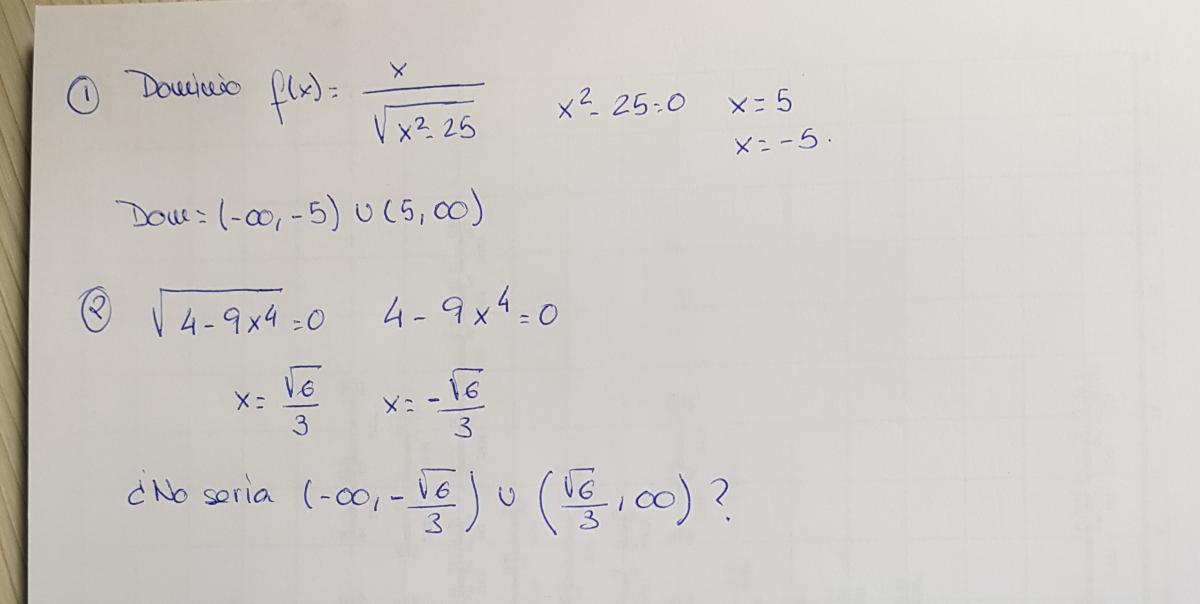 ① Dominio f(x) = x / √(x² - 25)    x² - 25 = 0    x = 5
x = -5.
Dom = (-∞, -5) ∪ (5, ∞)
② √(4 - 9x⁴) = 0    4 - 9x⁴ = 0
x = √6/3    x = -√6/3
¿No seria (-∞, -√6/3) ∪ (√6/3, ∞)?